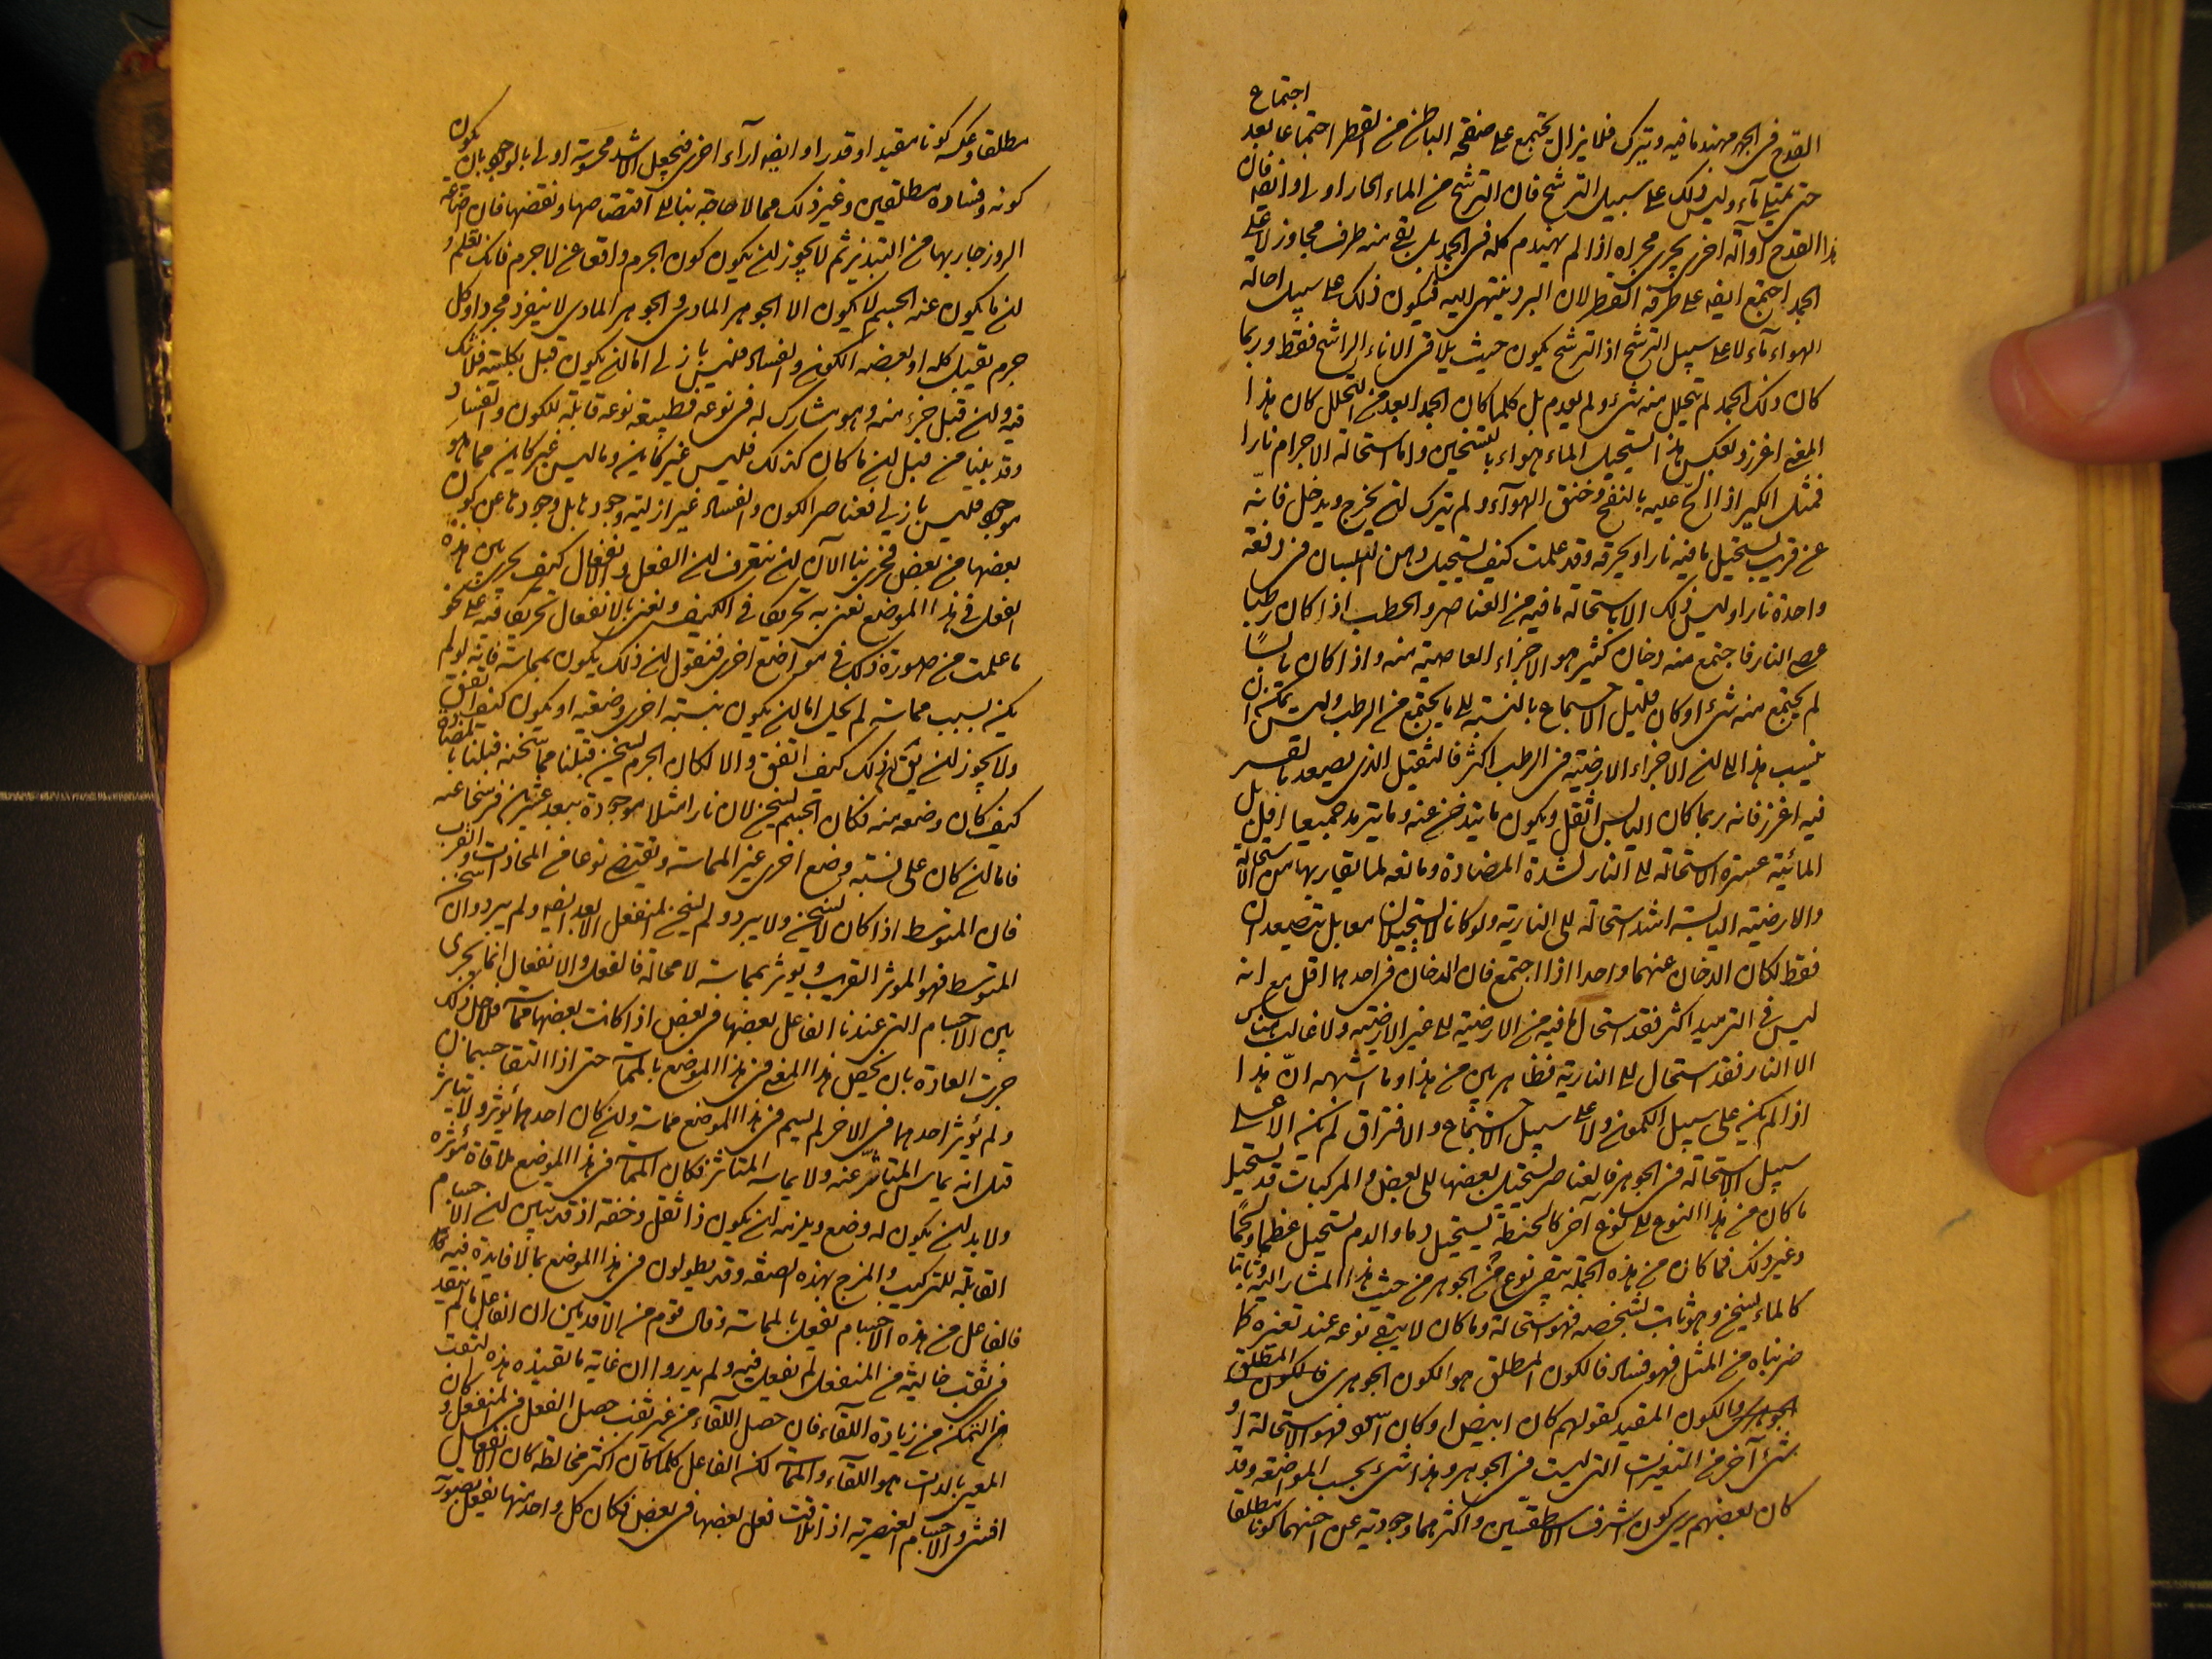 اجتماع
القدح فى الجمد مهندما فيه ويترك فلا يزال يجتمع على صفحة الباطن من القطر اجتماعا بعد
حتى يمتلى ماء وليس ذلك على سبيل الترشح فان الترشح من الماء الحار اولى وايضه فان
هذا القدح او آلة اخرى يجرى مجراه اذا لم يهندم كله فى الجمد بل بقى منه طرف مجاوز لاعلى
الجمد اجتمع ايضه على طرفه القطر لان البرد ينتهى اليه فيكون ذلك على سبيل احالة
الهواء ماء لا على سبيل الترشح اذ الترشح يكون حيث يلاقى الاناء الراشح فقط وربما
كان ذلك الجمد لم يتحلل منه شىء ولم يعدم بل كلما كان الجمد ابعد من التحلل كان هذا
المعنى اغزر وبعكس هذا يستحيل الماء هواء بالتسخين واما استحالة الاجرام نارا
فمثل الكير اذا الح عليه بالنفخ وخنق الهوآء ولم يترك ان يخرج ويدخل فانه
عن قريب يستحيل ما فيه نارا ويحرقه وقد علمت كيف يستحيل دهن البلسان فى دفعة
واحدة نارا وليس ذلك الا باستحالة ما فيه من العناصر والحطب اذا كان رطبا
عصى النار فاجتمع منه دخان كثير هو الاجزاء العاصية منه واذا كان يابسا
لم يجتمع منه شىء او كان قليل الاجتماع بالنسبة الى ما يجتمع من الرطب وليس يمكن ان
ينسب هذا الى ان الاجزاء الارضية فى الرطب اكثر فالثقيل الذى يصعد بالقسر
فيه اغزر فانه ربما كان اليابس اثقل ويكون ما يتدخن عنه وما يترمد جميعا اقل بل
المائية عسرة الاستحالة الى النار لشدة المضادة ومانعه لما يقاربها من الاستحالة
والارضية اليابسة اشد استحالة الى النارية ولو كانا لا يستحيلان معا بل يتصعدان
فقط لكان الدخان عنهما واحدا اذا اجتمع فان الدخان فى احدهما اقل مع انه
ليس فى الترميد اكثر فقد استحال ما فيه من الارضية الى غير الارضية ولا غالب هناك
الا النار فقد استحال الى النارية فظاهر بين من هذا وما اشبهه ان هذا
اذا لم يكن على سبيل الكمون ولا على سبيل الاجتماع والافتراق لم يكن الا على
سبيل الاستحالة فى الجوهر فالعناصر يستحيل بعضها الى بعض والمركبات قد تستحيل
ما كان من هذا النوع الى نوع آخر كالحنطة يستحيل دما والدم يستحيل عظما ولحما
وغير ذلك فما كان من هذه الجملة يبقى نوع من الجوهر من حيث هذا المشار اليه ثابتا
كالماء يسخن وهو ثابت بشخصه فهو استحالة وما كان لا يبقى نوعه عند تغيره كما
ضربناه من المثل فهو فساد فالكون المطلق هو الكون الجوهرى فالكون المطلق
الجوهرى والكون المقيد كقولهم كان ابيض او كان اسود فهو الاستحالة او
شىء آخر من التغيرات التى ليست فى الجوهر وهذا شىء بحسب المواضعه وقد
كان بعضهم يرى كون اشرف الاسطقسين واكثرهما وجودية عن اخسهما كونا مطلقا
مطلقا وعكسه كونا مقيدا وقد راوا ايضه آراء اخرى فجعل الاشد محسوسية اولى بالوجود بان يكون
كونه وفساده مطلقين وغير ذلك مما لا حاجة بنا الى اقتصاصها ونقضها فان اضاعة
الروزجار بها من التبذير ثم لا يجوز ان يكون كون الجرم واقعا عن لا جرم فانك تعلم
ان ما يكون عنه الجسم لا يكون الا الجوهر المادى والجوهر المادى لا ينفرد مجردا وكل
جرم يقبل كله او بعضه الكون والفساد فليس بازلى اما ان يكون قبل بكليته فلا شك
فيه وان قبل جزء منه وهو مشارك له فى نوعه فطبيعة نوعه قابلة للكون والفساد
وقد بينا من قبل ان ما كان كذلك فليس غير كاين وما ليس غير كاين مما هو
موجود فليس بازلى فعناصر الكون والفساد غير ازلية وجودها بل وجودها عن كون
بعضها من بعض فحرى بنا الآن ان نتعرف ان الفعل والانفعال كيف يجرى بين هذه
الفعل فى هذا الموضع نعنى به تحريكا فى الكيف ونعنى بالانفعال تحركا فيه على نحو
ما علمت من صورة ذلك فى مواضع اخرى فنقول ان ذلك يكون بمماسة فانه لو لم
يكن بسبب مماسة لم يخل اما ان يكون بنسبة اخرى وضعيه او يكون كيف اتفق
ولا يجوز ان يكون ذلك كيف اتفق والا لكان الجرم يسخن قبلنا مما يسخنه قبلنا بالمضادة
كيف كان وضعه منه فكان الجسم يسخن لان نارا مثلا موجودة ببعد عشرين فرسخا عنه
فاما ان كان على نسبة وضع اخرى غير المماسة ويقتضى نوعا من المحاذات والقرب
فان المتوسط اذا كان لا يسخن ولا يبرد ولم يسخن المنفعل الابعد ايضه ولم يبرد وان سخن
المتوسط فهو الموثر القريب ويوثر بمماسة لا محالة فالفعل والانفعال انما يجرى
بين الاجسام التى عندنا الفاعل بعضها فى بعض اذا كانت بعضها مماسة فلاجل ذلك
جرت العادة بان يخص هذا المعنى فى هذا الموضع بالمماسة حتى اذا التقا جسمان
ولم يوثر احدهما فى الاخر لم يسم فى هذا الموضع مماسة وان كان احدهما يؤثر ولا يتاثر
قيل انه يماس المتاثر عنه ولا يماسه المتاثر فكان المماسة فى هذا الموضع ملاقاة مؤثرة
ولا بد ان يكون له وضع ويلزمه ان يكون ذا ثقل وخفة اذ قد تبين ان الاجسام
القابلة للتركيب والمزج بهذه الصفة وقد يطولون فى هذا الموضع بما لا فايدة فيه
فالفاعل من هذه الاجسام يفعل بالمماسة وقال قوم من الاقدمين ان الفاعل ما لم ينفذ
فى ثقب خالية من المنفعل لم يفعل فيه ولم يدروا ان غاية ما تفيده هذه الثقب
من التمكن من زيادة اللقاء فان حصل اللقاء من غير ثقب حصل الفعل فى المنفعل وكان
المعين بالذات هو اللقاء والمماسة لكن الفاعل كلما كان اكثر مخالطة كان الانفعال
افشى والاجسام العنصرية اذا تلاقت فعل بعضها فى بعض فكان كل واحد منها يفعل بصورته